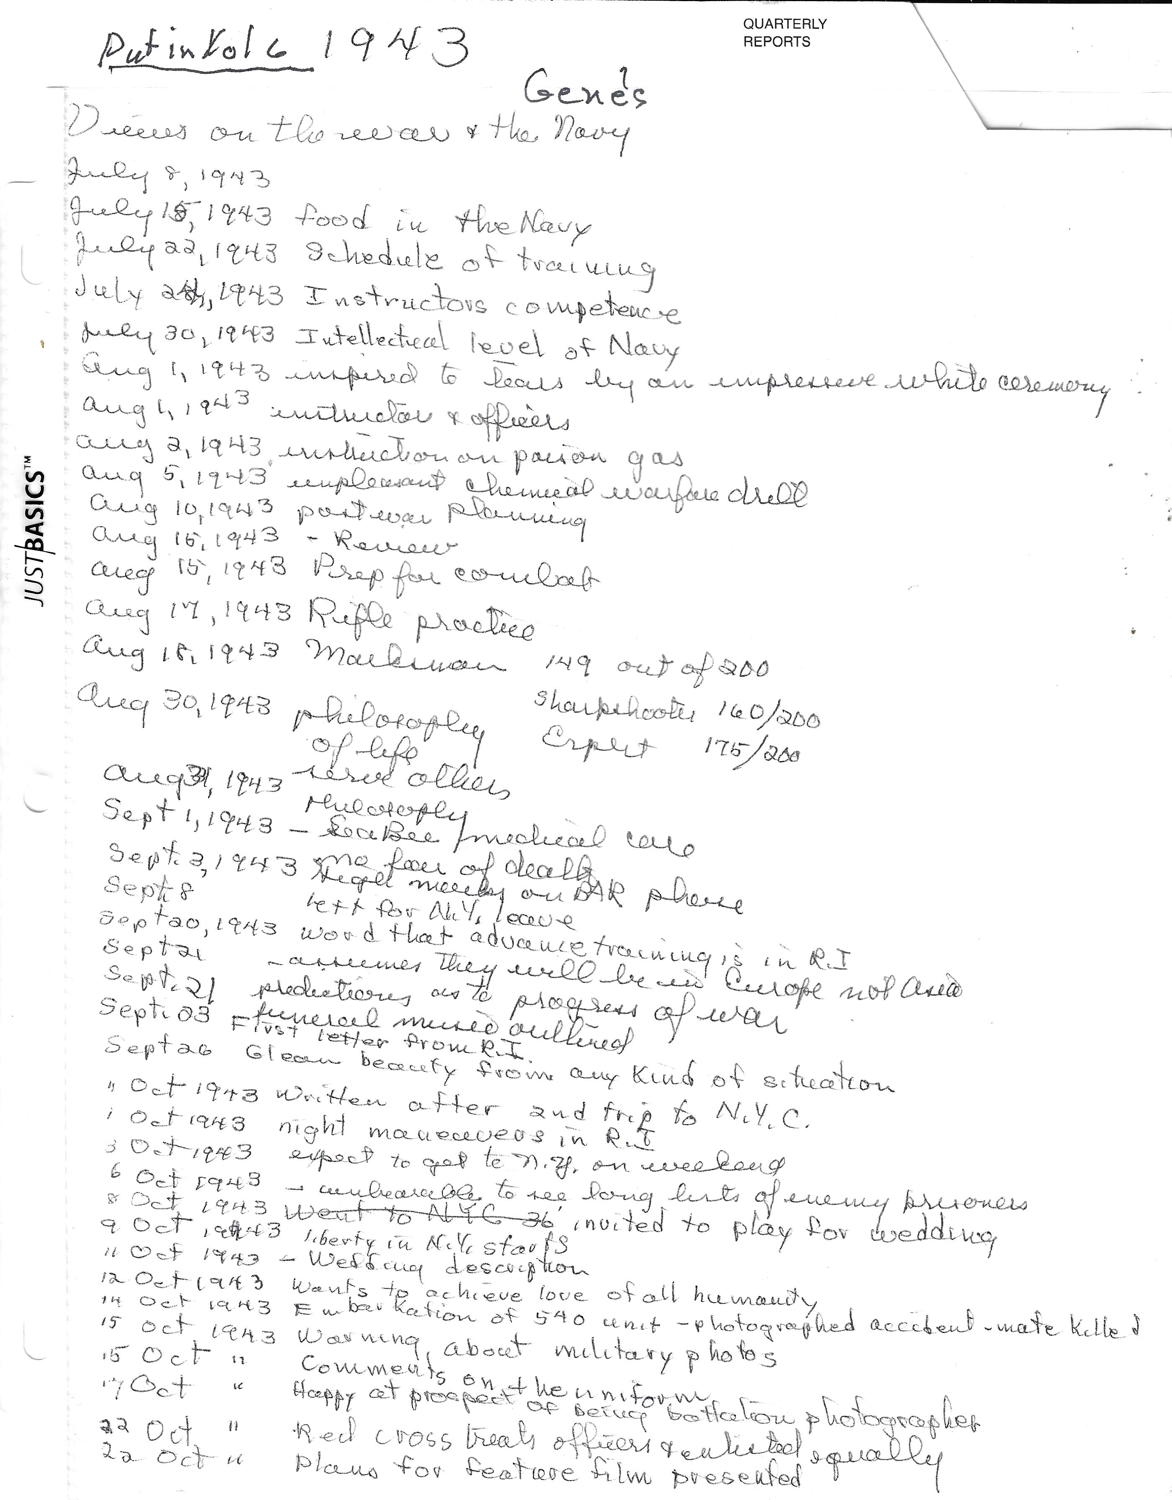 Put in Vol 6 1943
QUARTERLY
REPORTS
Gene's
Views on the war & the Navy
July 8, 1943
July 15, 1943 food in the Navy
July 22, 1943 Schedule of training
July 24, 1943 Instructors competence
July 30, 1943 Intellectical level of Navy
Aug 1, 1943 inspired to tears by an impressive white ceremony
Aug 1, 1943 instructor & officers
Aug 2, 1943 instruction on poison gas
Aug 5, 1943 unpleasant chemical warfare drill
Aug 10, 1943 postwar planning
Aug 15, 1943 - Review
Aug 15, 1943 Prep for combat
Aug 17, 1943 Rifle practice
Aug 18, 1943 Marksman 149 out of 200
Sharpshooter 160/200
Aug 30, 1943 philosophy
of life
Expert 175/200
Aug 31, 1943 serve others
philosophy
Sept 1, 1943 - SeaBee / medical care
Sept. 3, 1943 no fear of death
on BAR phone
Sept. 8 left for N.Y. leave
Sept 20, 1943 word that advance training is in R.I
Sept 21 - assumes they will be in Europe not Asia
Sept. 21 predictions as to progress of war
Sept. 23 funeral music outlined
First letter from R.I.
Sept 26 Glean beauty from any kind of situation
" Oct 1943 written after 2nd trip to N.Y.C.
1 Oct 1943 night maneuvers in R.I
3 Oct 1943 expect to get to N.Y. on weekend
6 Oct 1943 - unbearable to see long lists of enemy prisoners
8 Oct 1943 Went to NYC 36 invited to play for wedding
9 Oct 1943 liberty in N.Y. starts
11 Oct 1943 - Wedding description
12 Oct 1943 Wants to achieve love of all humanity
14 Oct 1943 Embarkation of 540 unit - photographed accident - mate killed
15 Oct 1943 Warning about military photos
15 Oct " Comments on the uniform
17 Oct " Happy at prospect of being battalion photographer
22 Oct " Red cross treats officers & enlisted equally
22 Oct " Plans for feature film presented
JUST/BASICS™